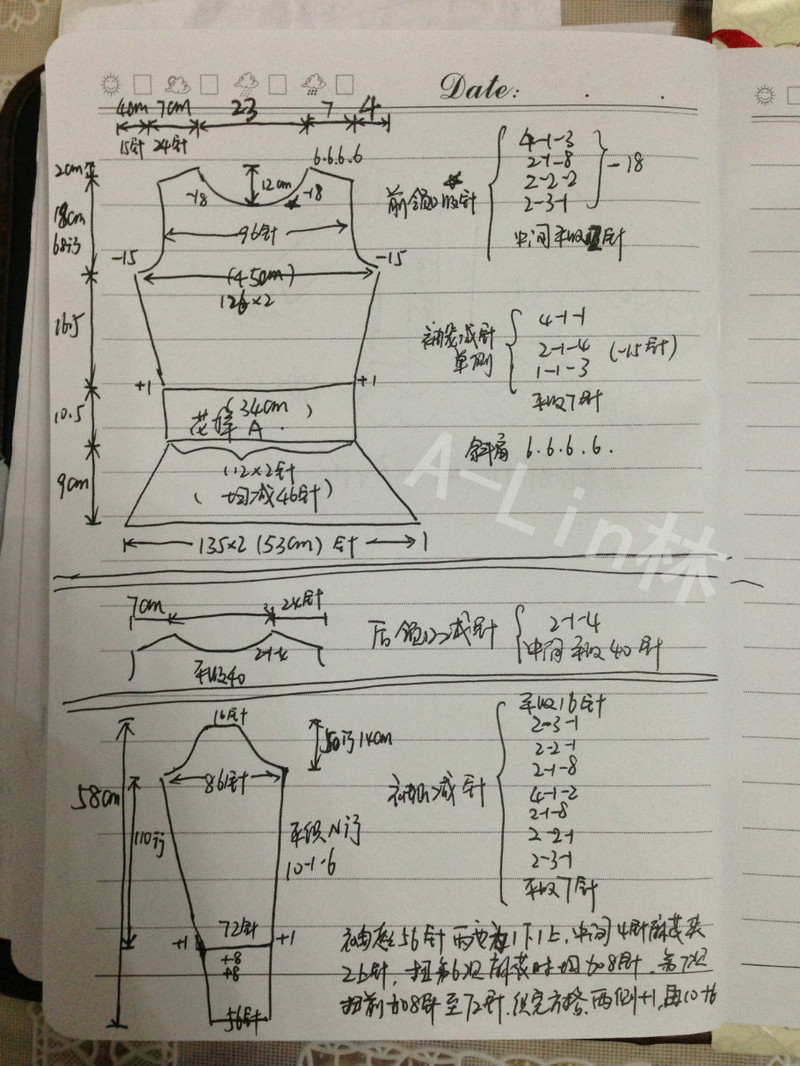 Date:
4cm 7cm 23 7 4
15针 24针
2cm
12cm
6.6.6.6
-18 -18
18cm
68行
96针
-15 -15
(45cm)
126×2
16.5
+1 +1
10.5
(34cm)
花样A.
9cm
112×2针
(均减46针)
135×2(53cm)针
前领口收针
4-1-3
2-1-8
2-2-2
2-3-1
-18
中间平收 针
袖笼减针
单侧
4-1-1
2-1-4
1-1-3
平收7针
(-15针)
斜肩 6.6.6.6.
A-Lin林
7cm 24针
平收40
2-1-4
后领口减针
2-1-4
中间平收40针
16针
50行14cm
86针
58cm
110行
平织N行
10-1-6
72针
+1 +1
+8
+8
56针
袖山减针
平收16针
2-3-1
2-2-1
2-1-8
4-1-2
2-1-8
2-2-1
2-3-1
平收7针
袖起56针 两边为1下1上,中间4针麻花共
26针,扭第6次麻花时均加8针.第7次
扭前加8针至72针.织完方格.两侧+1,再10-1-6